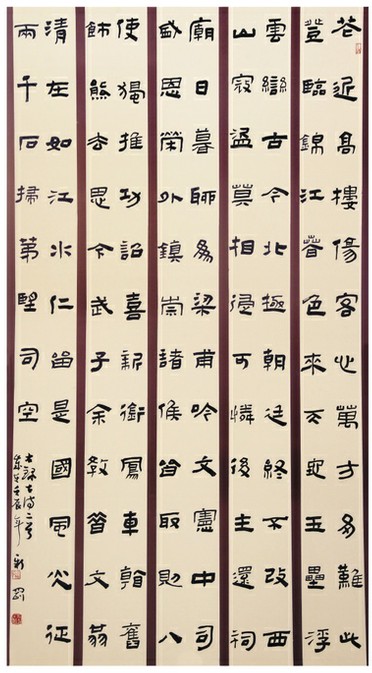 花近高樓傷客心萬方多難此
登臨錦江春色來天地玉壘浮
雲變古今北極朝廷終不改西
山寇盜莫相侵可憐後主還祠
廟日暮聊為梁甫吟文憲中司
盛恩榮外鎮崇諸侯皆取則八
使獨推功詔喜新銜鳳車看舊
飾熊去思今武子余教昔文翁
清在如江水仁留是國風光征
兩千石掃第望司空
古詩二首
壬辰年